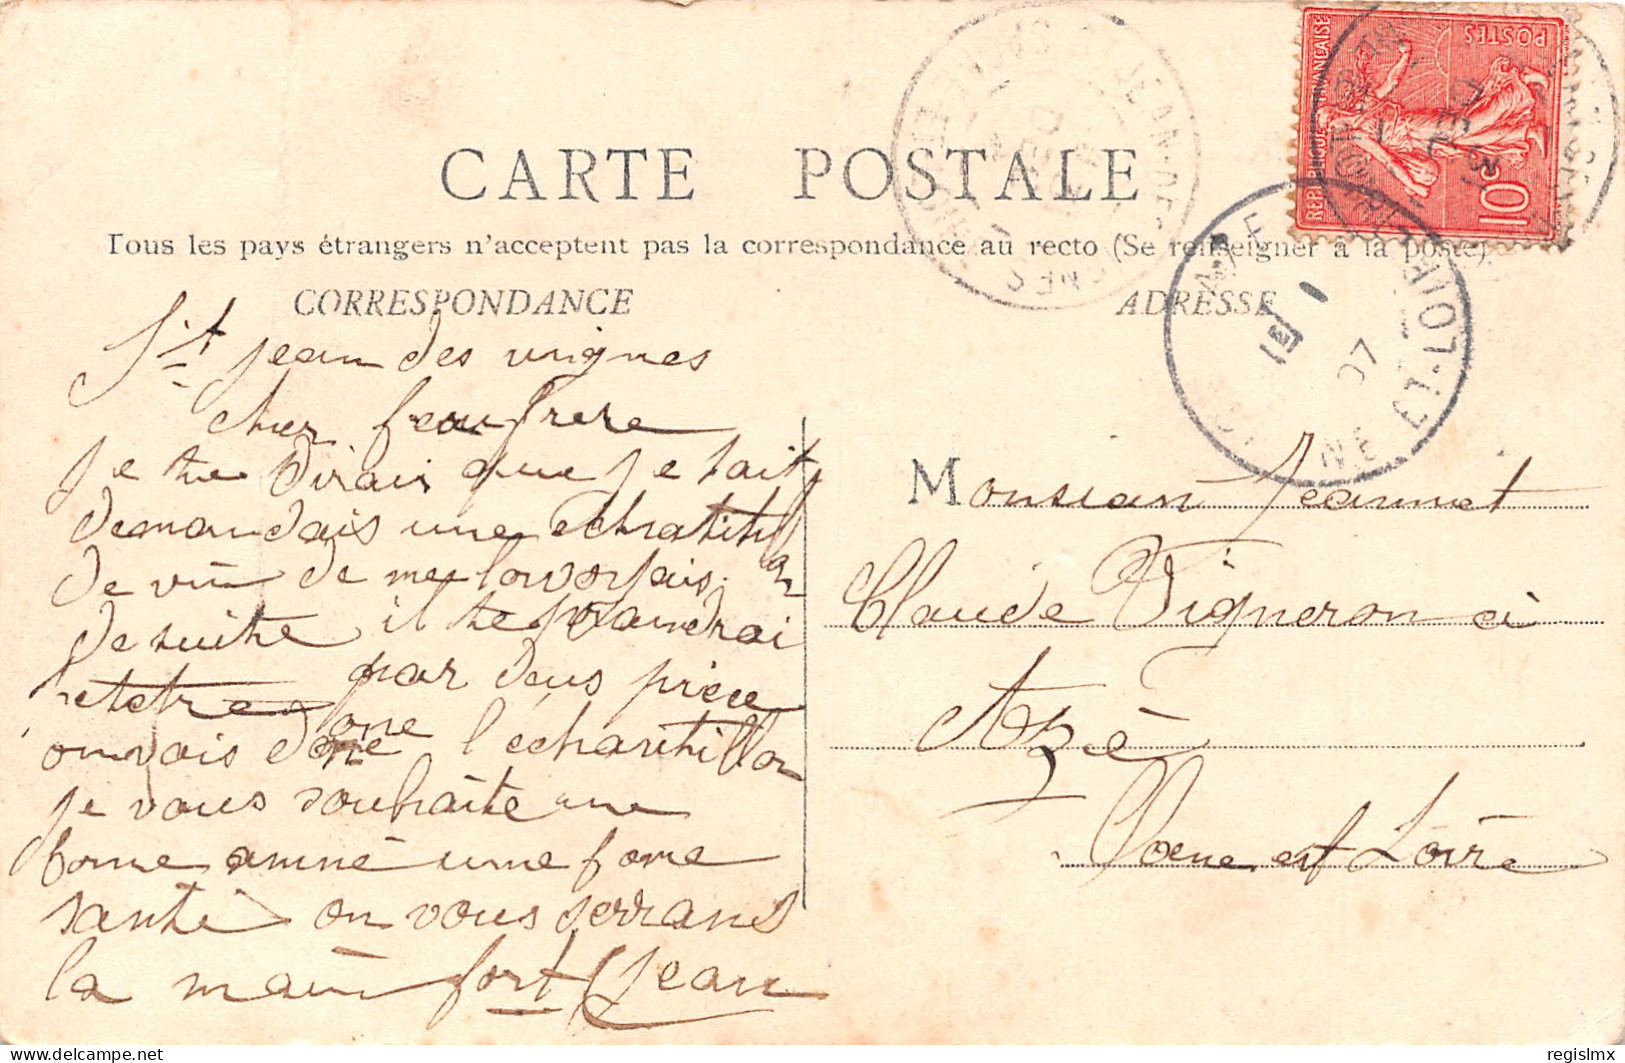 CARTE POSTALE
Tous les pays étrangers n'acceptent pas la correspondance au recto (Se renseigner à la poste)
CORRESPONDANCE
ADRESSE
REPUBLIQUE FRANÇAISE
POSTES
10c
ET-LOIRE
07
St jean des vignes
cher beaufrere
je te dirais que je sait
demandais une
de vin de me
de suite il te prandrai
lettre par deus pièce
on vais done l'échantillon
je vous souhaite une
bonne anné une bone
santé on vous serrans
la main fort Jean
Monsian Jeannet
Claude Vigneron a
Azé
Soene et Loire
delcampe.net
regislmx